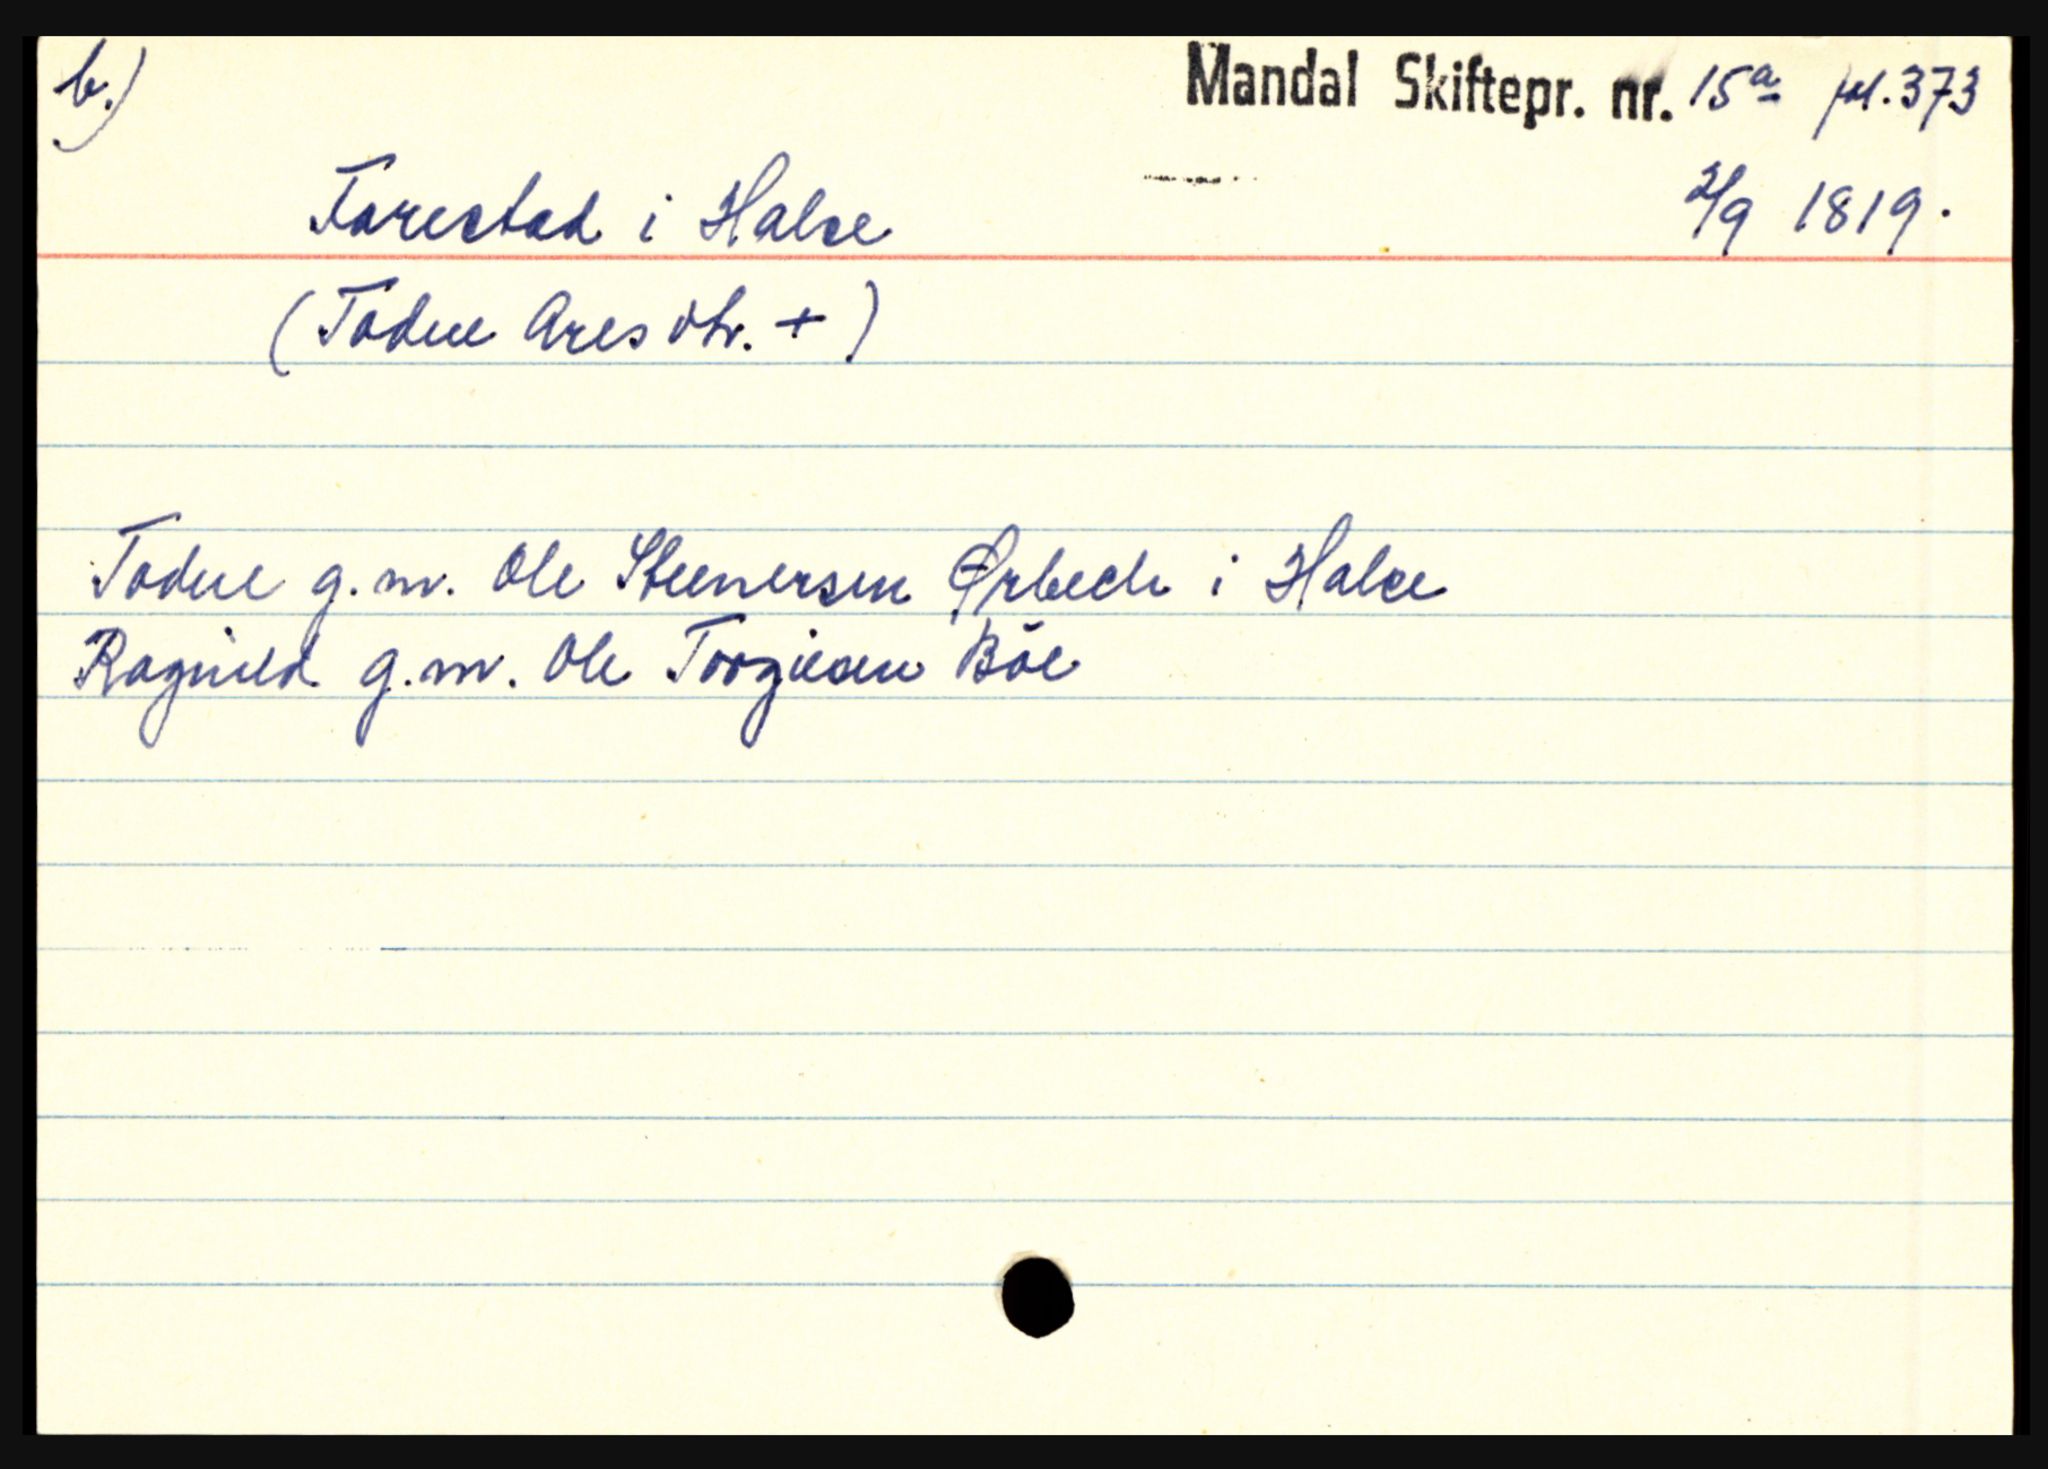 b.) Mandal Skiftepr. nr. 15a fol. 373
2/9 1819.
Farestad i Halse
(Todne Aresdtr. +)
Todne g.m. Ole Steenersen Ørbech i Halse
Ragnild g.m. Ole Torgiesen Böe